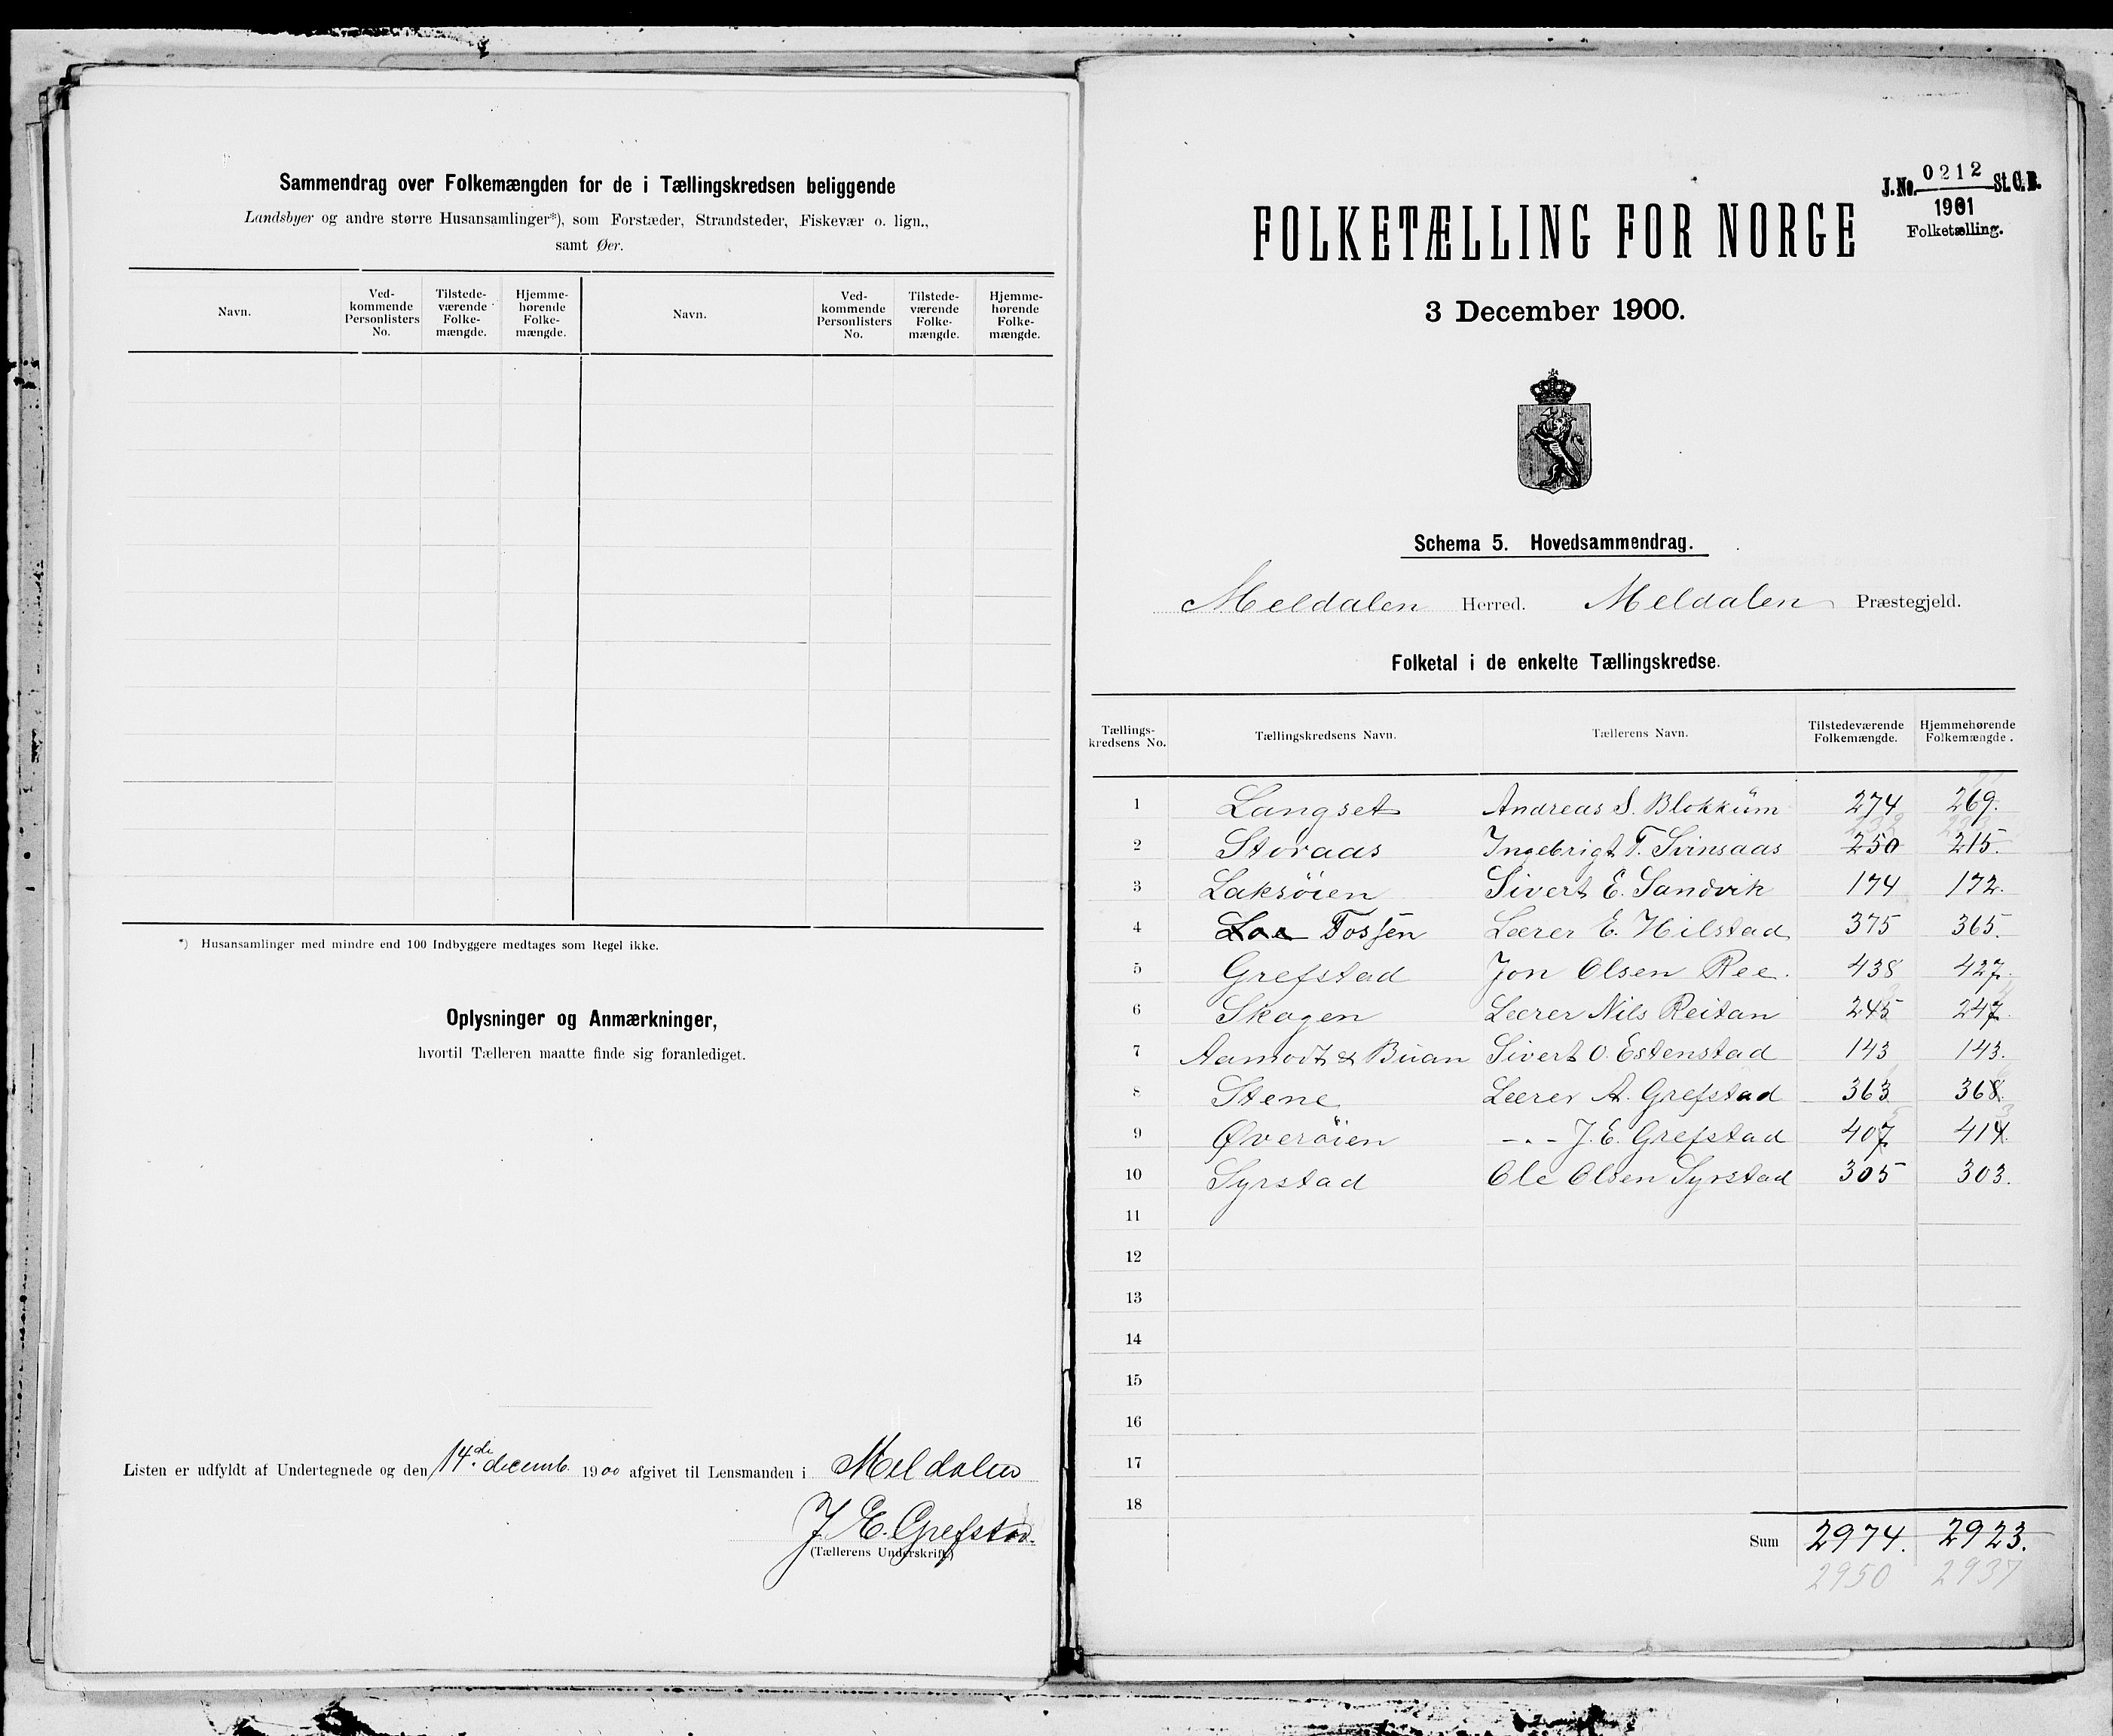 Sammendrag over Folkemængden for de i Tællingskredsen beliggende
Landsbyer og andre større Husansamlinger*), som Forstæder, Strandsteder, Fiskevær o. lign.,
samt Øer.
Navn. Ved-kommende Personlisters No. Tilstede-værende Folke-mængde. Hjemme-hørende Folke-mængde. Navn. Ved-kommende Personlisters No. Tilstede-værende Folke-mængde. Hjemme-hørende Folke-mængde.
*) Husansamlinger med mindre end 100 Indbyggere medtages som Regel ikke.
Oplysninger og Anmærkninger,
hvortil Tælleren maatte finde sig foranlediget.
Listen er udfyldt af Undertegnede og den 14.de decemb. 1900 afgivet til Lensmanden i Meldalen
J. E. Grefstad.
(Tællerens Underskrift)
J.No. 0212 St.C.B.
1901
Folketælling.
FOLKETÆLLING FOR NORGE
3 December 1900.
Schema 5. Hovedsammendrag.
Meldalen Herred. Meldalen Præstegjeld.
Folketal i de enkelte Tællingskredse.
Tællings-kredsens No. Tællingskredsens Navn. Tællerens Navn. Tilstedeværende Folkemængde. Hjemmehørende Folkemængde.
1 Langset Andreas S. Blokkum 274 269.
2 Storaas Ingebrigt T. Svinsaas 250 215.
3 Laksöien Sivert E. Sandvik 174 172.
4 Fossen Lærer E. Hilstad 375 365.
5 Grefstad Jon Olsen Ree. 438 427.
6 Skogen Lærer Nils Reitan 245 247.
7 Aamodt & Buan Sivert O. Estenstad 143 143.
8 Stene Lærer A. Grefstad 363 368.
9 Øveröien -"- J. E. Grefstad 407 414.
10 Syrstad Ole Olsen Syrstad 305 303.
11
12
13
14
15
16
17
18
Sum 2974. 2923.
2950 2937